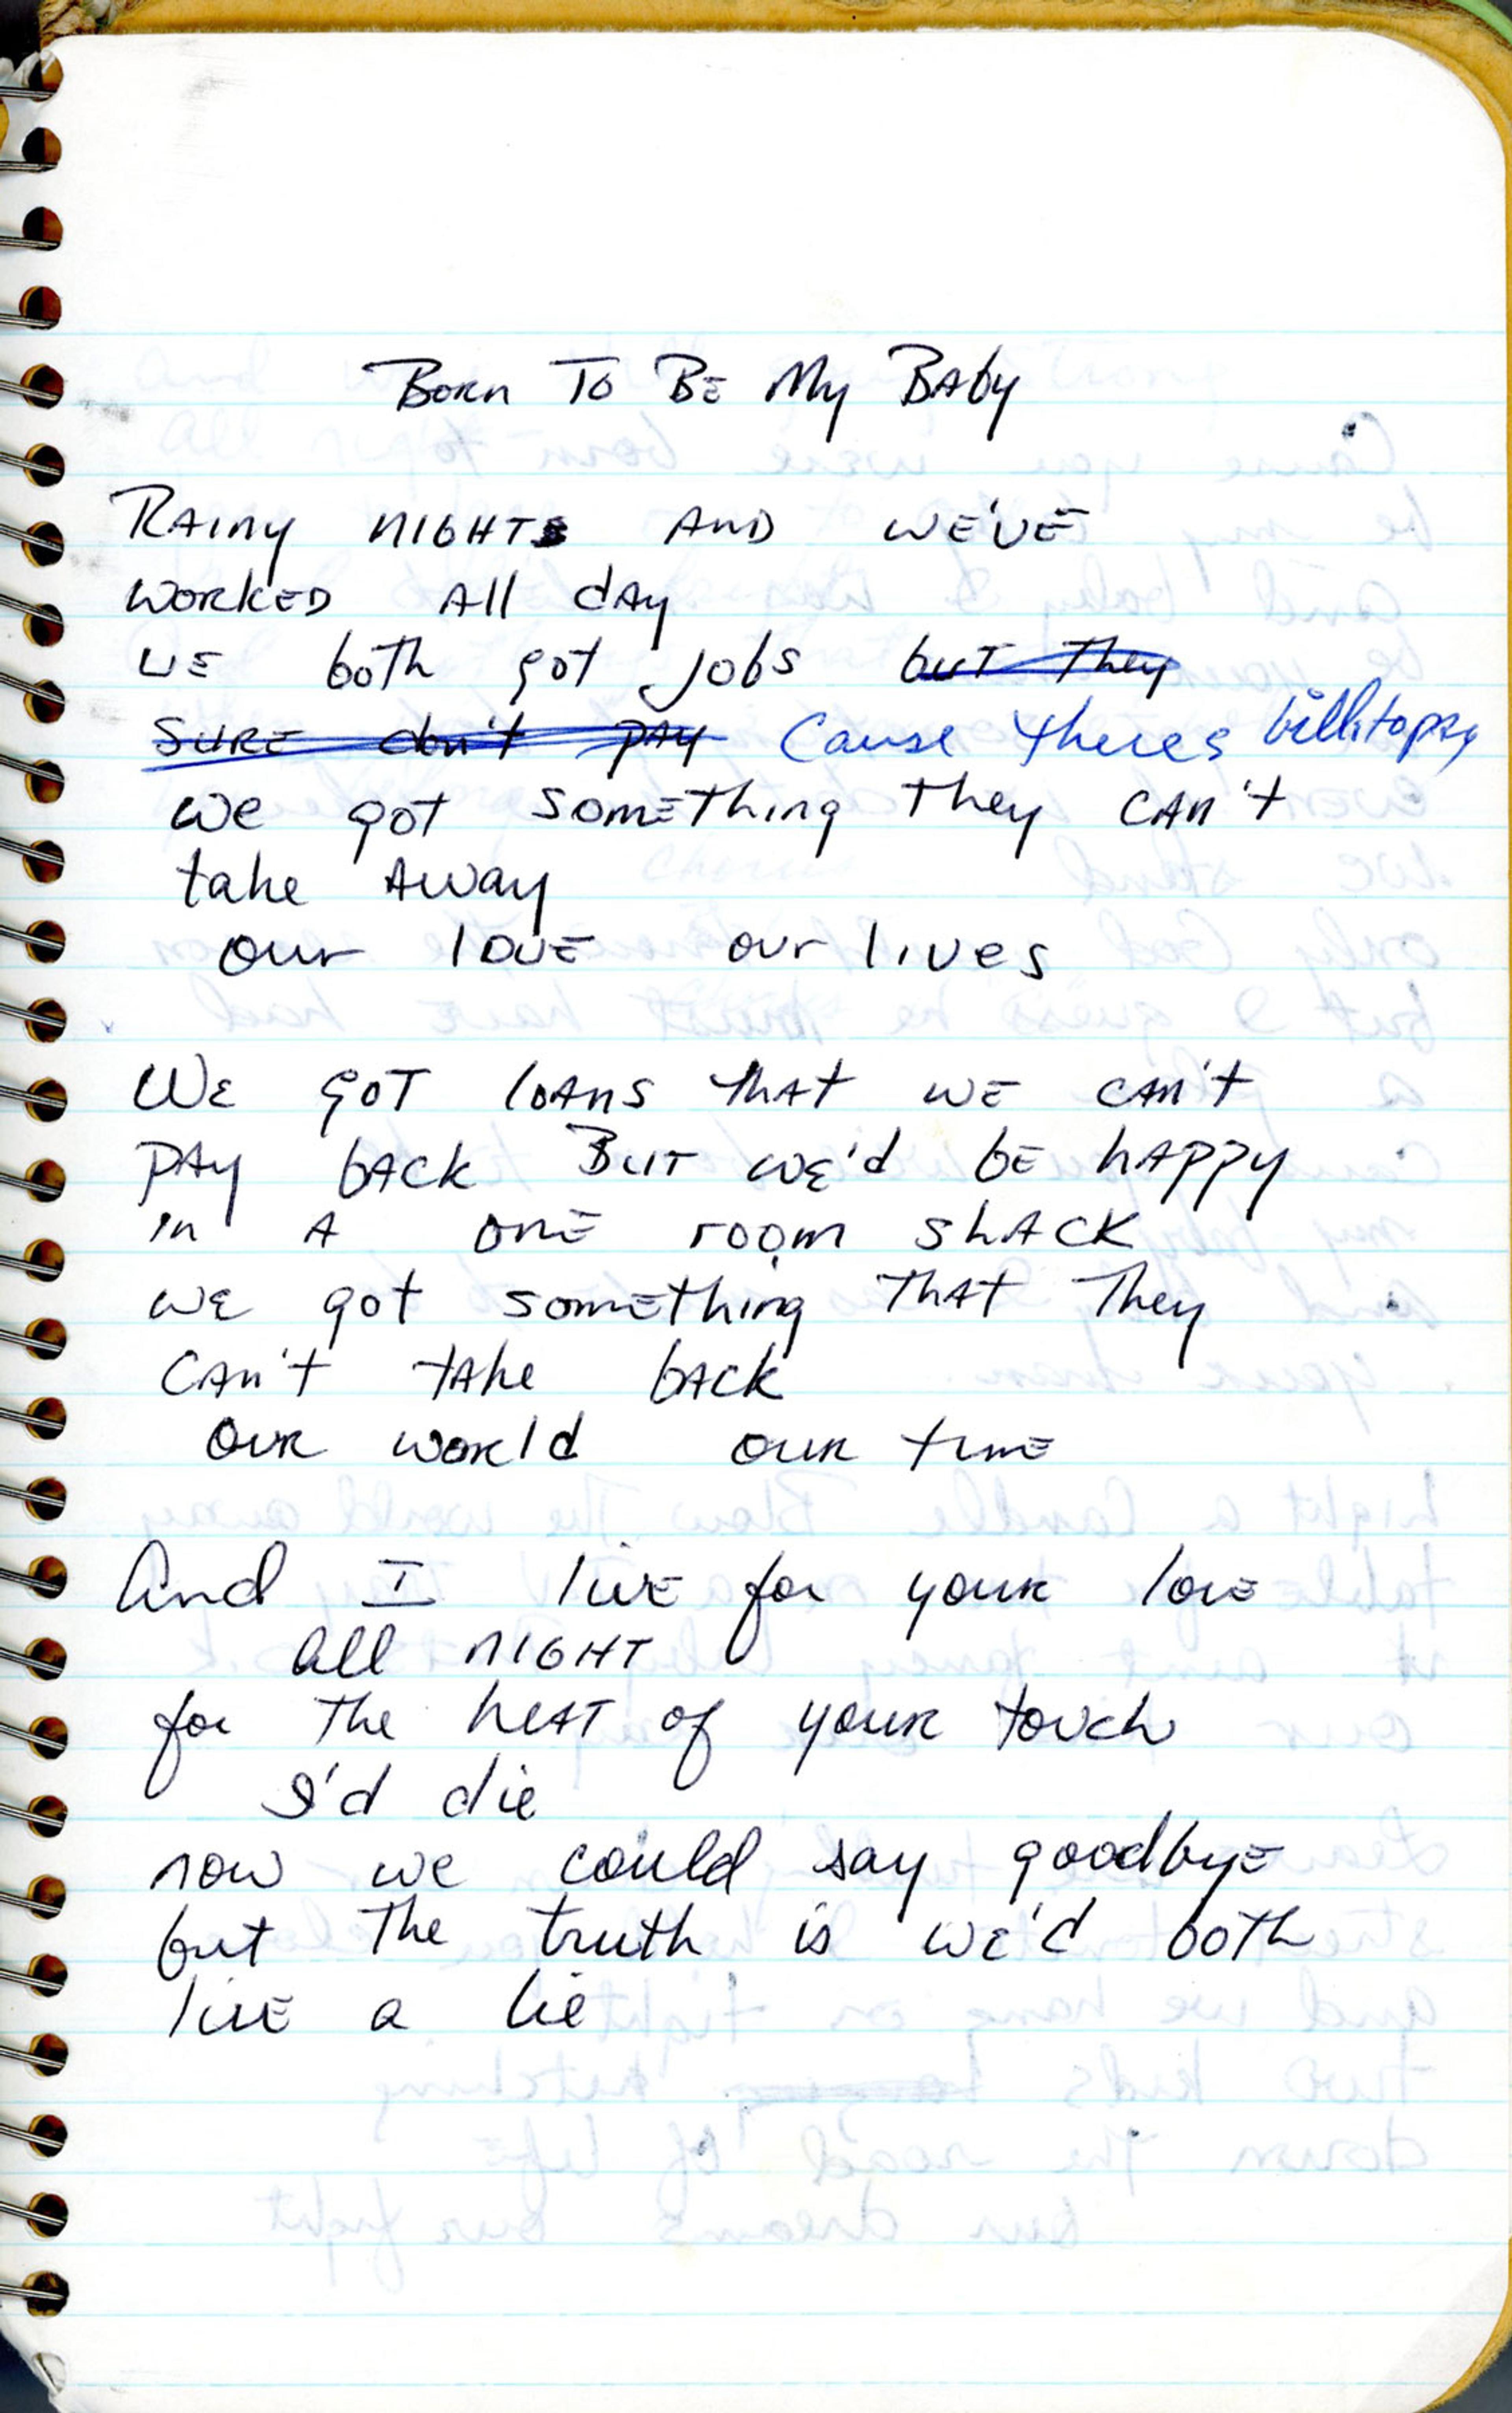 Born To Be My Baby
Rainy nights and we've
worked all day
we both got jobs but they
sure don't pay Cause theres bills to pay
we got something they can't
take away
our love our lives
We got loans that we can't
pay back But we'd be happy
in a one room shack
we got something that they
can't take back
our world our time
And I live for your love
all night
for the heat of your touch
I'd die
now we could say goodbye
but the truth is we'd both
live a lie